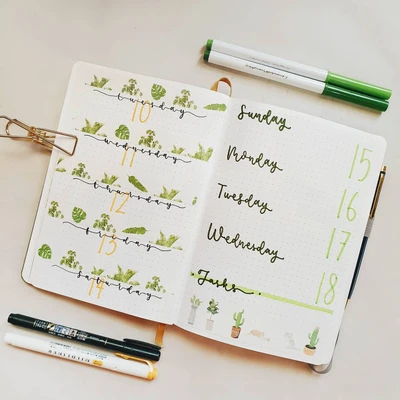 tuesday
10
wednesday
11
thursday
12
friday
13
saturday
14
Sunday
15
Monday
16
Tuesday
17
Wednesday
18
Tasks